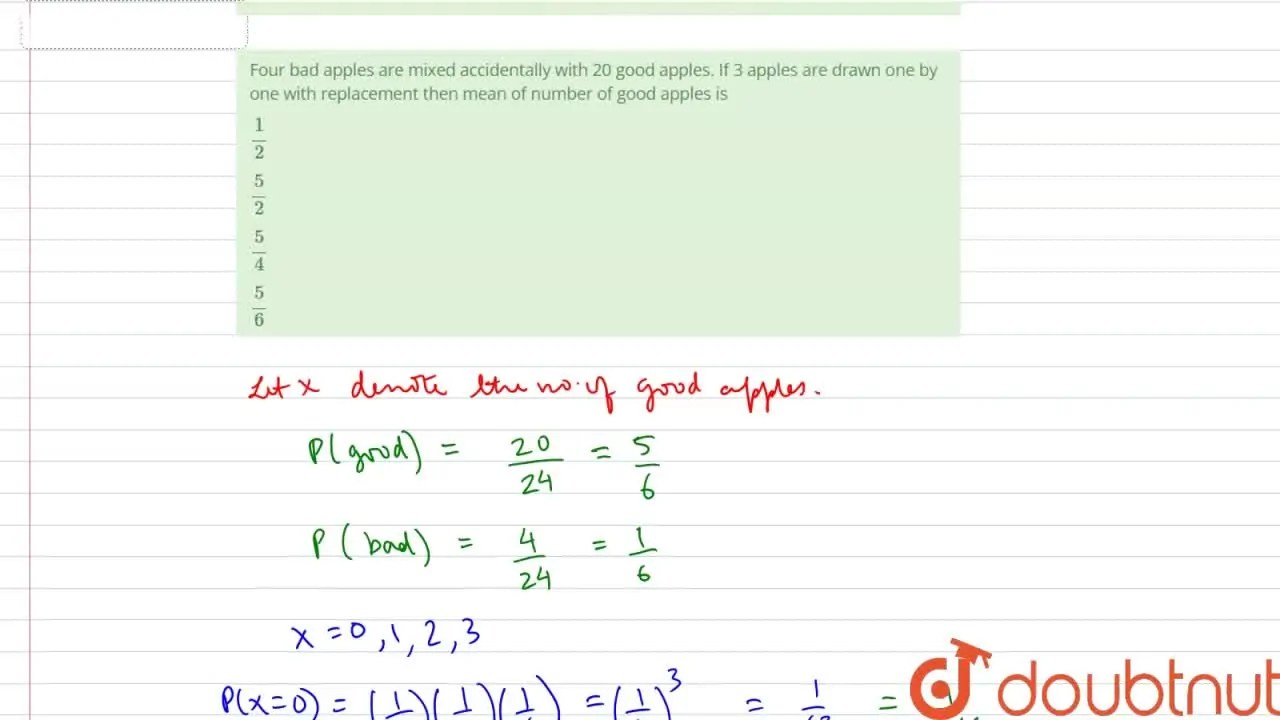 Four bad apples are mixed accidentally with 20 good apples. If 3 apples are drawn one by
one with replacement then mean of number of good apples is
1/2
5/2
5/4
5/6
Let x denote the no. of good apples.
P(good) = 20/24 = 5/6
P(bad) = 4/24 = 1/6
x = 0, 1, 2, 3
P(x=0) = (1/ )(1/ )(1/ ) = (1/ )^3 = 1/ =
doubtnut